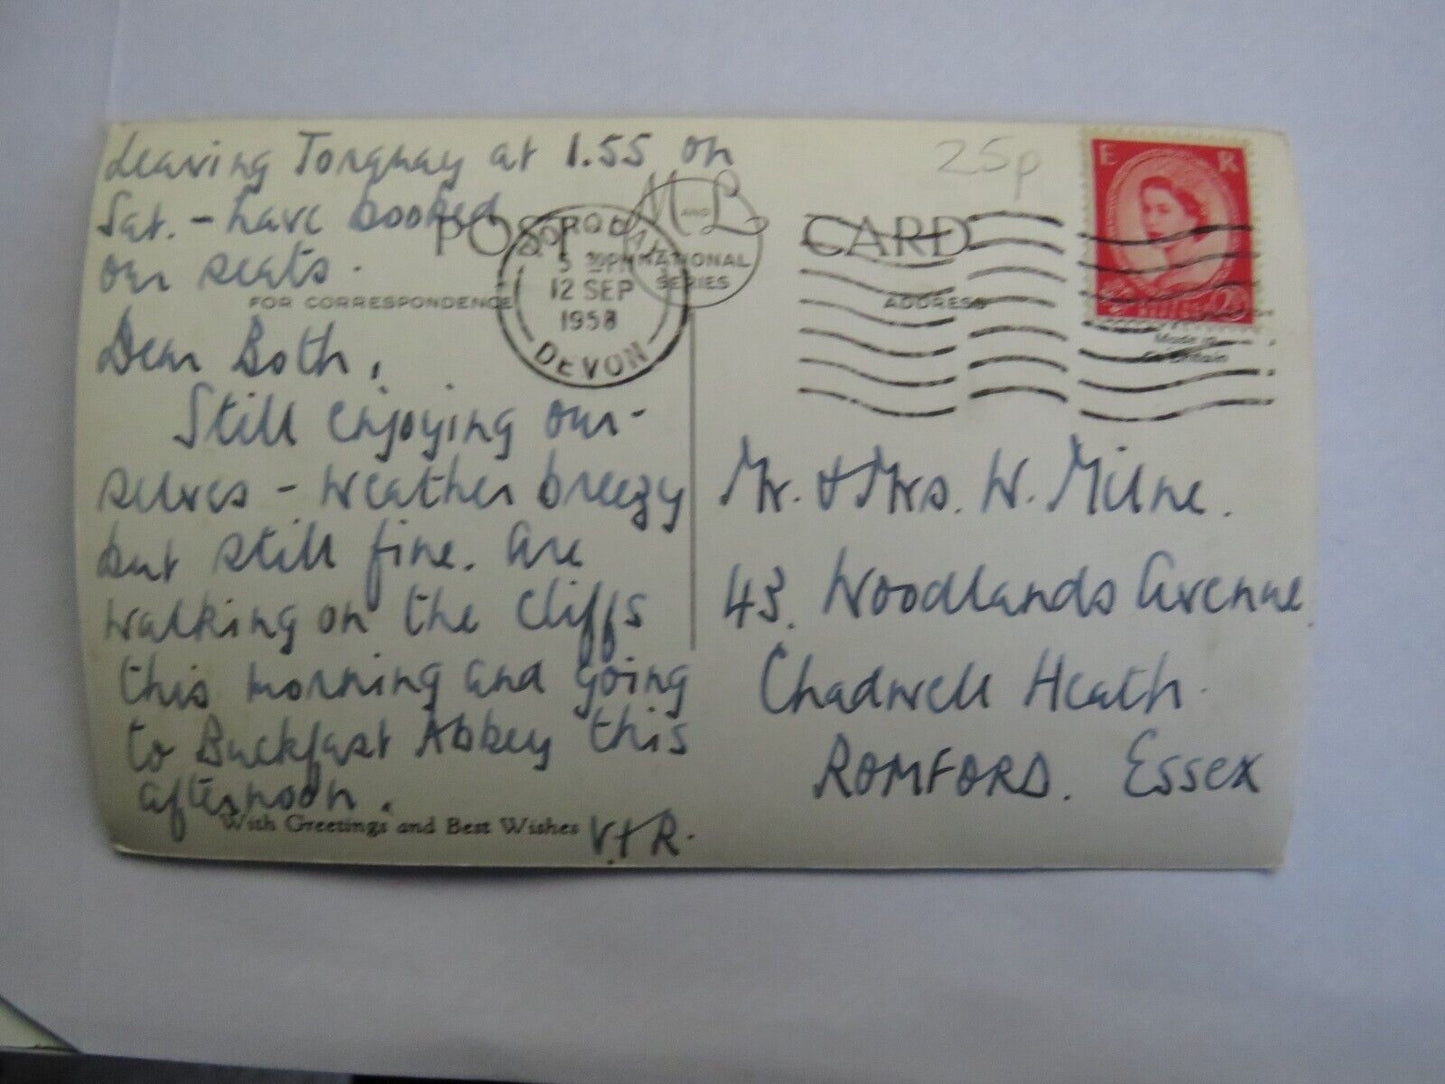 Leaving Torquay at 1.55 on
Sat. - have booked
our seats.
POST CARD
M AND L
NATIONAL
SERIES
FOR CORRESPONDENCE
ADDRESS
12 SEP
1958
DEVON
25p
E R
Made in
Gt. Britain
Dear Both,
Still enjoying our-
selves - weather breezy
but still fine. Are
walking on the cliffs
this morning and going
to Buckfast Abbey this
afternoon.
With Greetings and Best Wishes
V + R.
Mr. & Mrs. W. Milne.
43, Woodlands Avenue,
Chadwell Heath.
ROMFORD. Essex